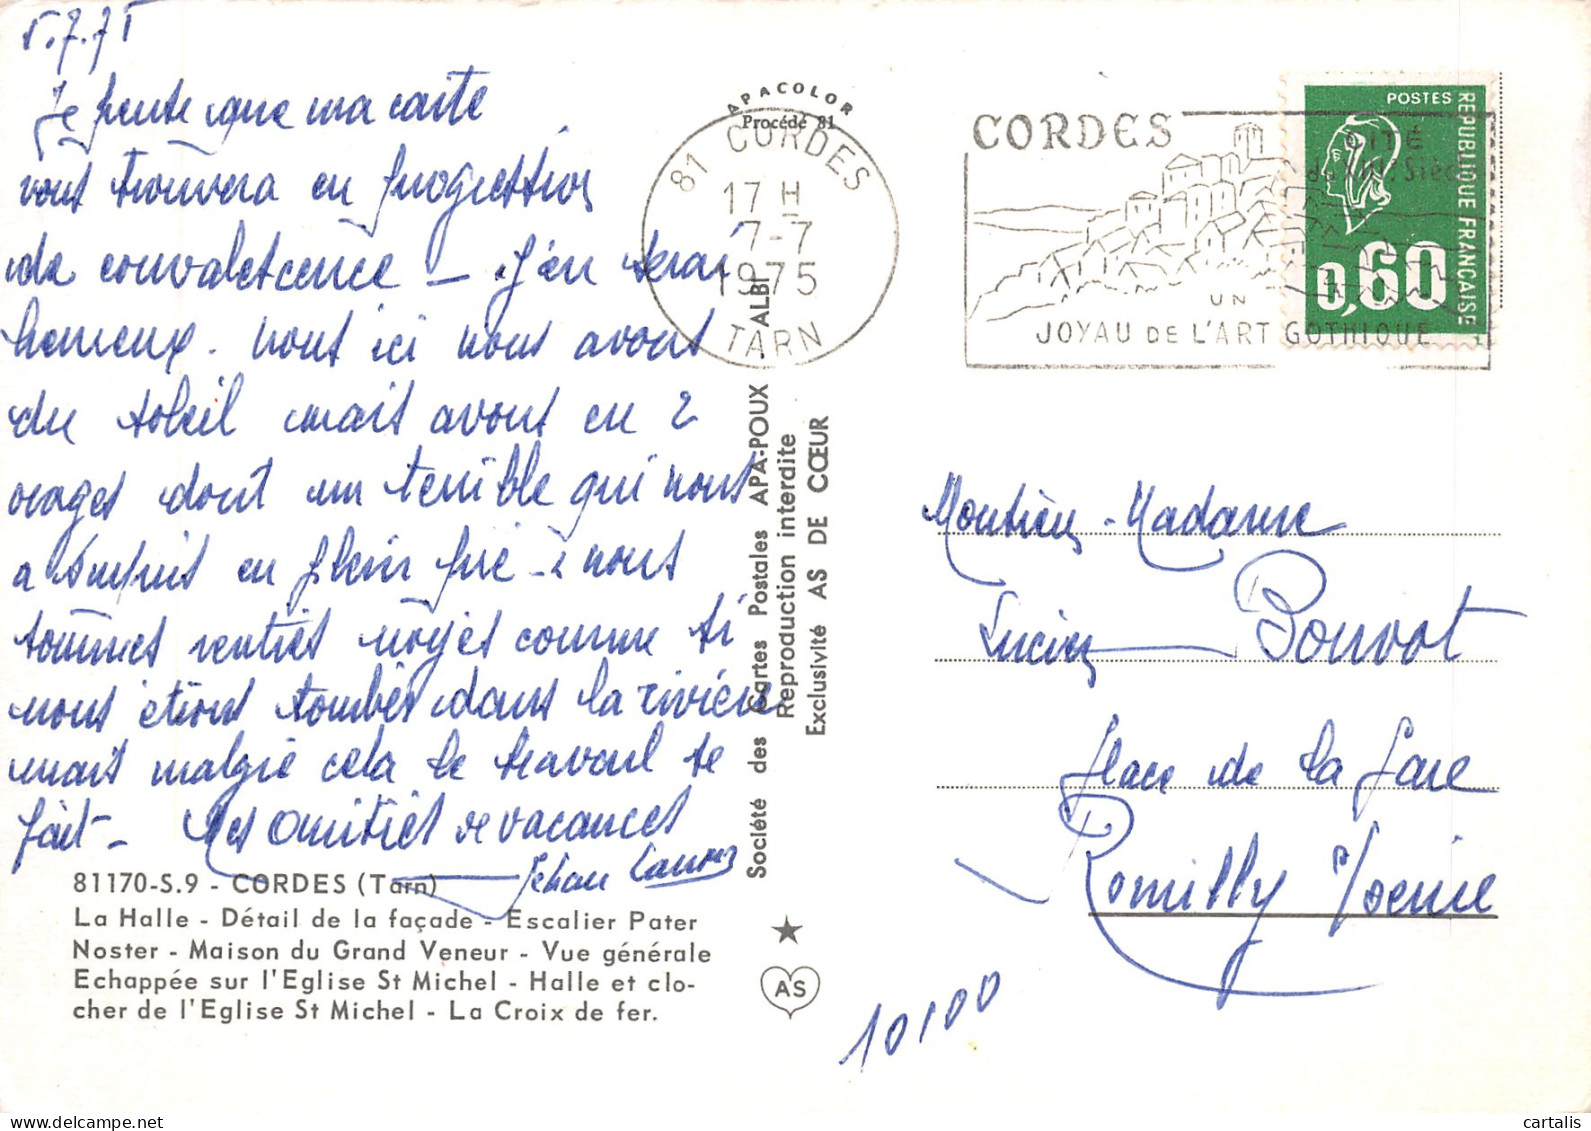 5.7.75
Je pense que ma carte
vous trouvera en progression
de convalescence - j'en serai
heureux. nous ici nous avons
du soleil mais avons eu 2
orages dont un terrible qui nous
a surpris en plein pré - nous
sommes rentrés noyés comme si
nous étions tombés dans la rivière
mais malgré cela le travail se
fait - Mes amitiés de vacances
81170-S.9 - CORDES (Tarn)
La Halle - Détail de la façade - Escalier Pater
Noster - Maison du Grand Veneur - Vue générale
Echappée sur l'Eglise St Michel - Halle et clo-
cher de l'Eglise St Michel - La Croix de fer.
APACOLOR
Procédé 81
81 CORDES
17 H
7-7
1975
TARN
Société des Cartes Postales APA-POUX - ALBI
Reproduction interdite
Exclusivité AS DE CŒUR
AS
CORDES
CITÉ
du XIIIe Siècle
UN
JOYAU DE L'ART GOTHIQUE
POSTES
REPUBLIQUE FRANÇAISE
0,60
Monsieur - Madame
Lucien Bonvot
place de la gare
Romilly s/seine
10100
cartalis